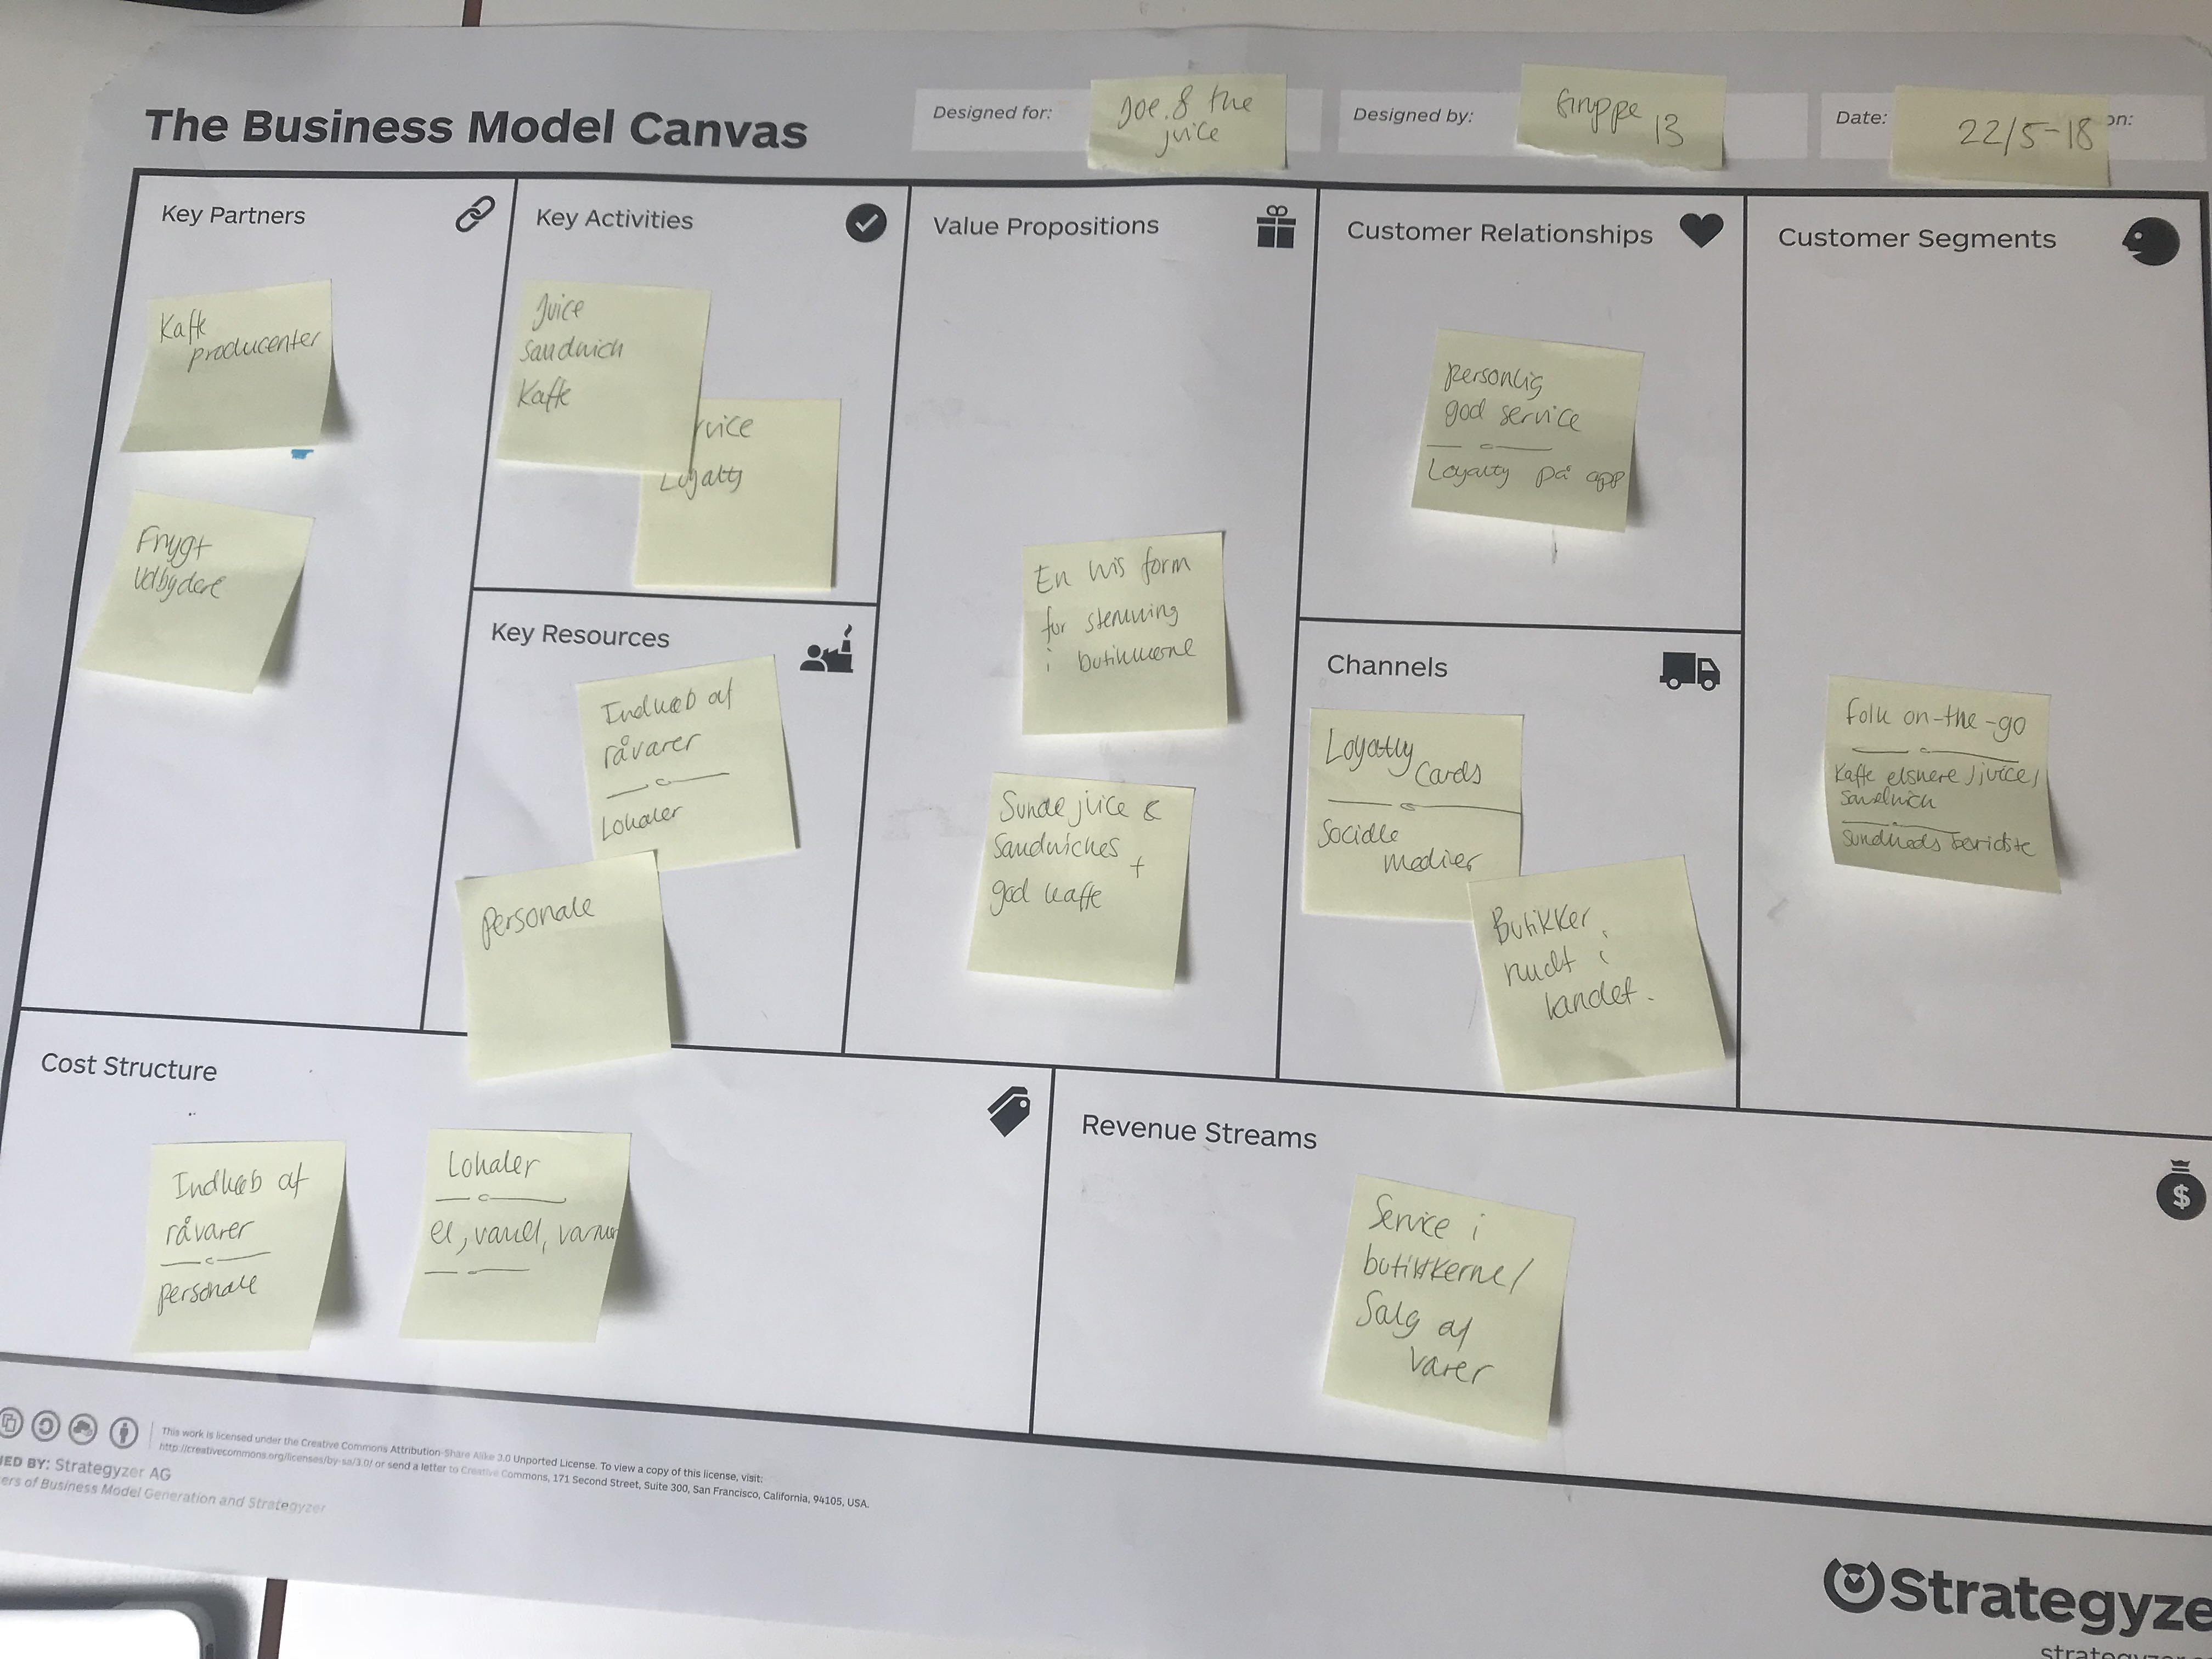 The Business Model Canvas
Designed for:
Joe & the
juice
Designed by:
Gruppe
13
Date:
22/5-18
on:
Key Partners
Kaffe
producenter
Frugt
Udbydere
Key Activities
Juice
Sandwich
Kaffe
rvice
Loyalty
Key Resources
Indkøb af
råvarer
Lokaler
Personale
Value Propositions
En vis form
for stemning
i butikkerne
Sunde juice &
Sandwiches +
god kaffe
Customer Relationships
personlig
god service
Loyalty på app
Channels
Loyalty
Cards
Sociale
medier
Butikker
rundt i
landet.
Customer Segments
Folk on-the-go
Kaffe elskere/juice/
Sandwich
Sundheds bevidste
Cost Structure
Indkøb af
råvarer
personale
Lokaler
el, vand, varme
Revenue Streams
Service i
butikkerne/
Salg af
varer
This work is licensed under the Creative Commons Attribution-Share Alike 3.0 Unported License. To view a copy of this license, visit:
http://creativecommons.org/licenses/by-sa/3.0/ or send a letter to Creative Commons, 171 Second Street, Suite 300, San Francisco, California, 94105, USA.
NED BY: Strategyzer AG
ers of Business Model Generation and Strategyzer
Strategyze
strategyze